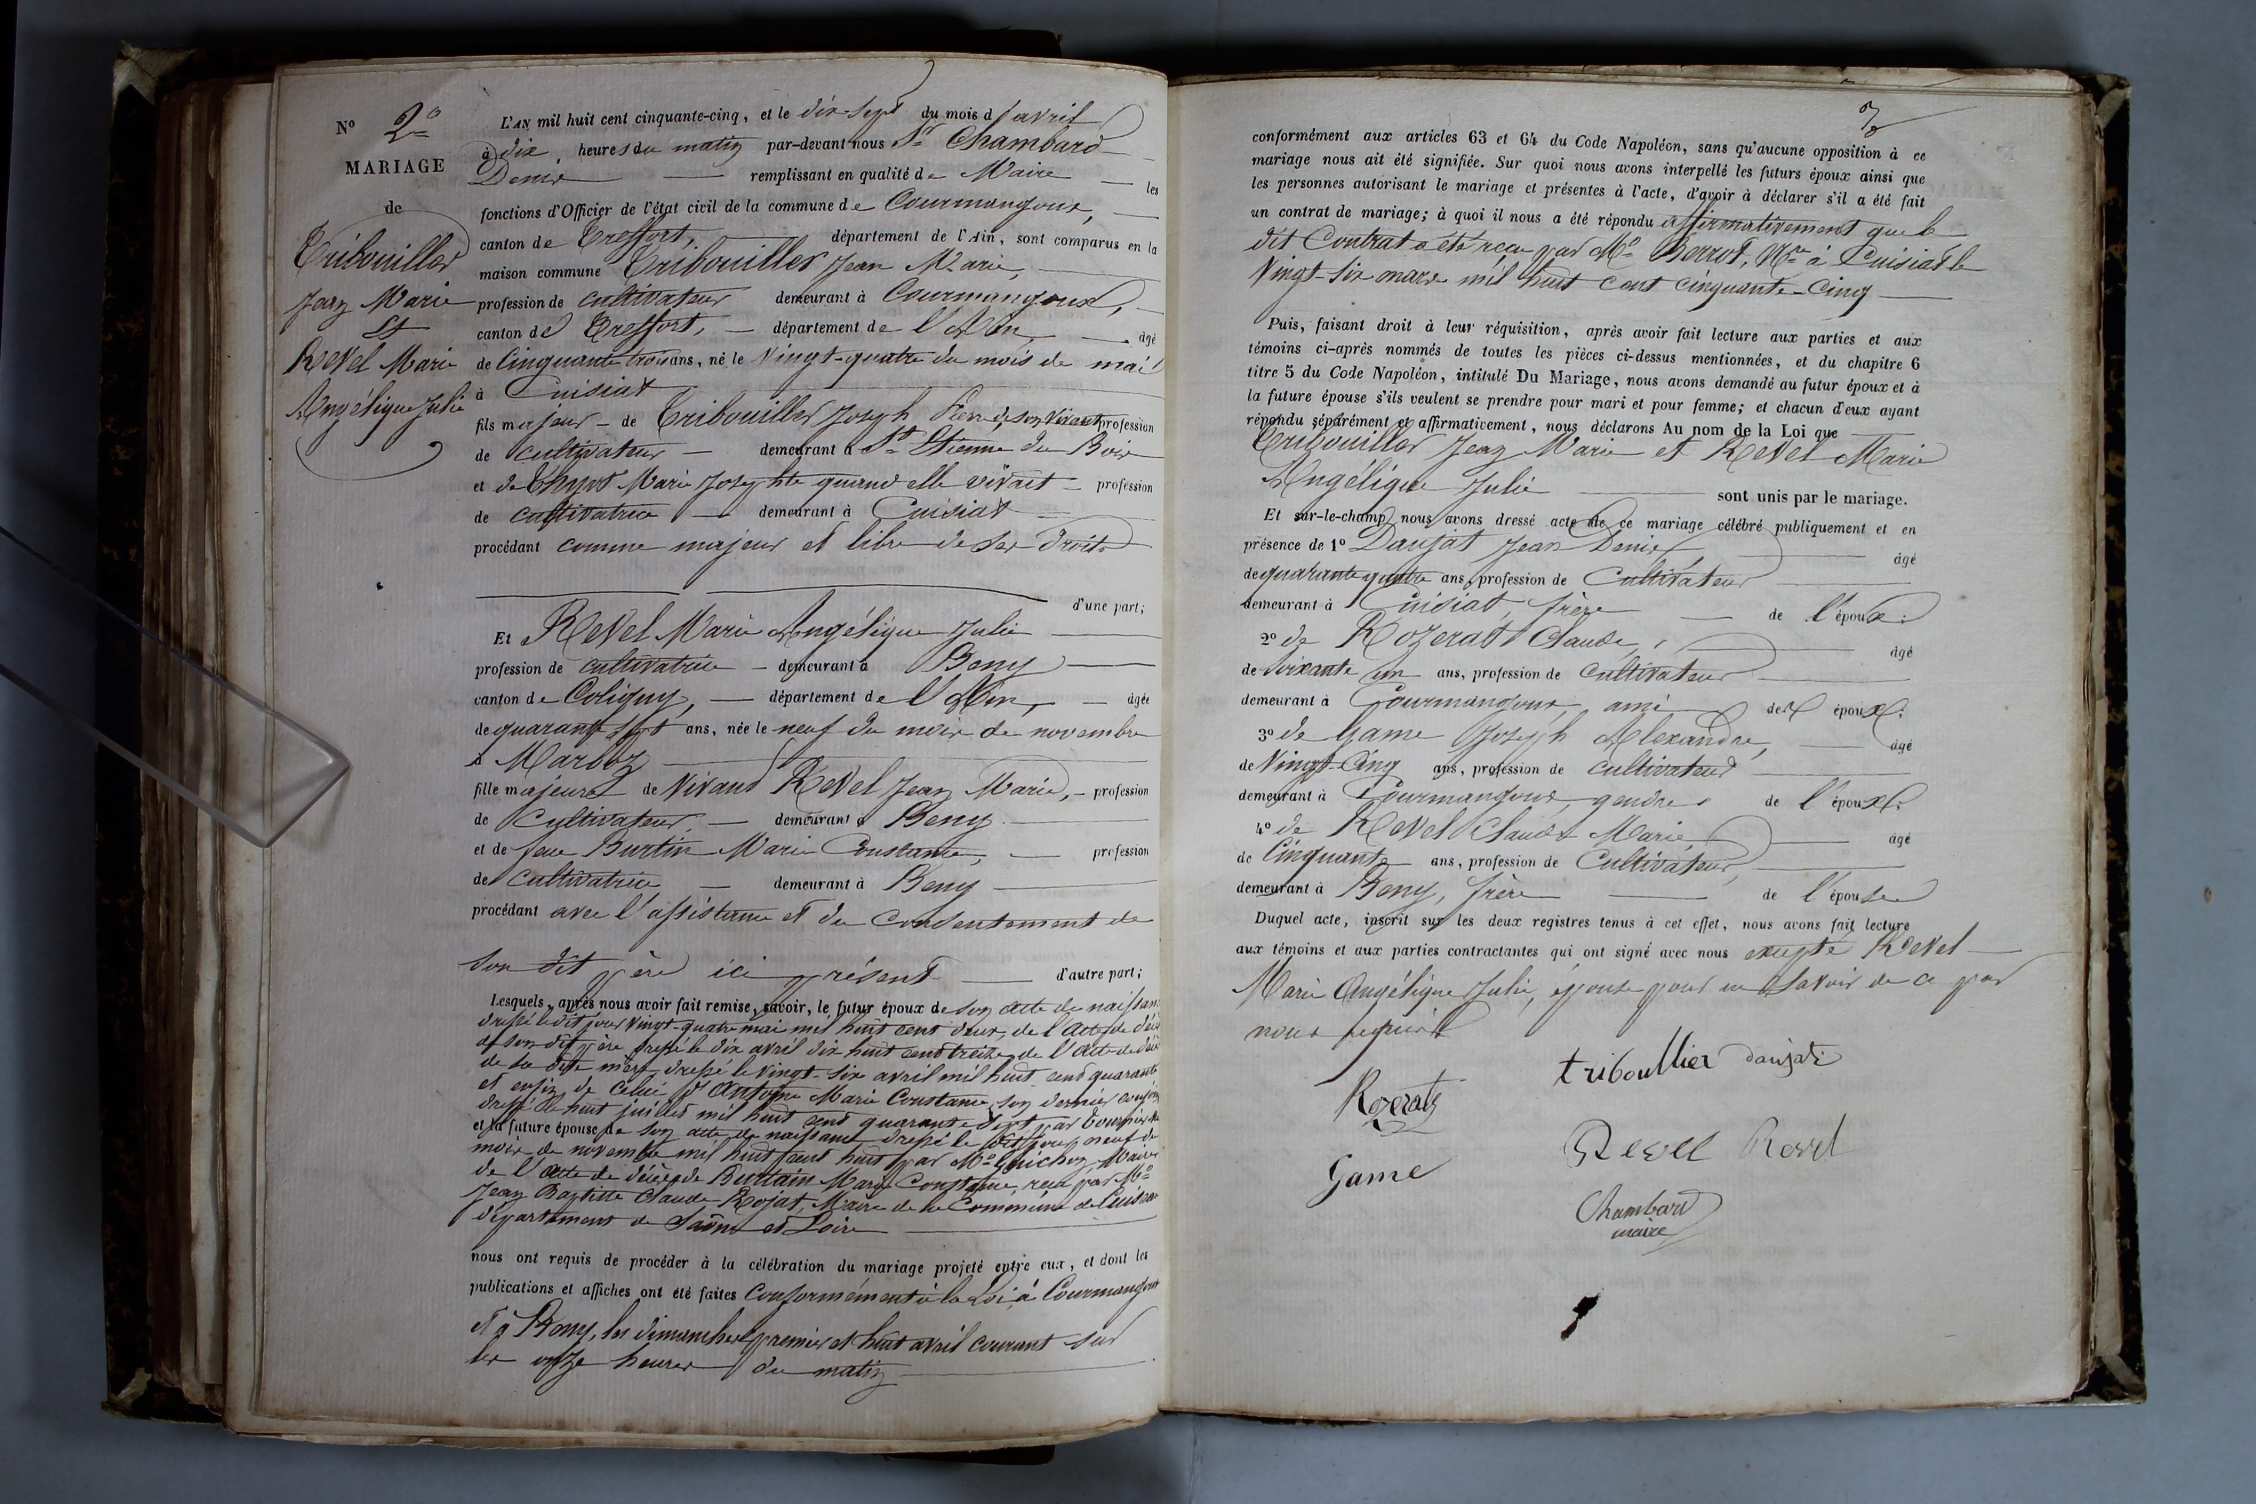 N° 2°
MARIAGE
de
Tribouiller
Jean Marie
Et
Revel Marie
Angélique Julie
L'AN mil huit cent cinquante-cinq, et le dix-sept du mois d'avril
à dix heures du matin par-devant nous Sr Chambard
Denis remplissant en qualité de Maire les
fonctions d'Officier de l'état civil de la commune de Courmangoux,
canton de Treffort, département de l'Ain, sont comparus en la
maison commune Tribouiller Jean Marie,
profession de cultivateur demeurant à Courmangoux,
canton de Treffort, département de l'Ain, âgé
de Cinquante trois ans, né le Vingt-quatre du mois de mai
à Cuisiat
fils majeur de Tribouiller Joseph de son vivant profession
de cultivateur demeurant à St Etienne du Bois
et de Marie Josephte quand elle vivait profession
de cultivatrice demeurant à Cuisiat
procédant comme majeur et libre de ses droits
d'une part;
Et Revel Marie Angélique Julie
profession de cultivatrice demeurant à Beny
canton de Coligny, département de l'Ain, âgée
de quarante sept ans, née le neuf du mois de novembre
à Marboz
fille majeure de vivant Revel Jean Marie, profession
de Cultivateur, demeurant à Beny
et de feue Burtin Marie Constance, profession
de Cultivatrice demeurant à Beny
procédant avec l'assistance et du consentement de
son dit père ici présent d'autre part;
Lesquels, après nous avoir fait remise, savoir, le futur époux de son acte de naissance
dressé ledit jour vingt-quatre mai mil huit cent deux, de l'acte de décès
de son dit père dressé le dix avril dix huit cent treize, de l'acte de décès
de sa dite mère, dressé le vingt-six avril mil huit cent quarante
et enfin de celui d' Antoine Marie Constance, son dernier conjoint
dressé le huit juillet mil huit cent quarante sept par
et la future épouse de son acte de naissance dressé le dit jour neuf du
mois de novembre mil huit cent huit par Mr Guichon, Maire
de l'acte de décès de Burtain Marie Constance, reçu par Mr
Jean Baptiste Claude Rojat, Maire de la Commune de Cuiseaux
département de Saône et Loire
nous ont requis de procéder à la célébration du mariage projeté entre eux, et dont les
publications et affiches ont été faites Conformément à la Loi, à Courmangoux
et à Beny, les dimanches premier et huit avril courant sur
les onze heures du matin
3
conformément aux articles 63 et 64 du Code Napoléon, sans qu'aucune opposition à ce
mariage nous ait été signifiée. Sur quoi nous avons interpellé les futurs époux ainsi que
les personnes autorisant le mariage et présentes à l'acte, d'avoir à déclarer s'il a été fait
un contrat de mariage; à quoi il nous a été répondu affirmativement que le
dit Contrat a été reçu par Me Berrot, Nre à Cuisiat le
Vingt-six mars mil huit cent cinquante-cinq
Puis, faisant droit à leur réquisition, après avoir fait lecture aux parties et aux
témoins ci-après nommés de toutes les pièces ci-dessus mentionnées, et du chapitre 6
titre 5 du Code Napoléon, intitulé Du Mariage, nous avons demandé au futur époux et à
la future épouse s'ils veulent se prendre pour mari et pour femme; et chacun d'eux ayant
répondu séparément et affirmativement, nous déclarons Au nom de la Loi que
Tribouiller Jean Marie et Revel Marie
Angélique Julie sont unis par le mariage.
Et sur-le-champ nous avons dressé acte de ce mariage célébré publiquement et en
présence de 1° Daujat Jean Denis âgé
de quarante quatre ans, profession de Cultivateur
demeurant à Cuisiat, frère de l'époux;
2° de Rozerat Claude, âgé
de soixante un ans, profession de cultivateur
demeurant à Courmangoux, ami des époux;
3° de Game Joseph Alexandre, âgé
de Vingt-Cinq ans, profession de cultivateur
demeurant à Courmangoux, gendre de l'époux;
4° de Revel Claude Marie âgé
de Cinquante ans, profession de Cultivateur,
demeurant à Beny, frère de l'épouse
Duquel acte, inscrit sur les deux registres tenus à cet effet, nous avons fait lecture
aux témoins et aux parties contractantes qui ont signé avec nous excepté Revel
Marie Angélique Julie, épouse pour ne savoir de ce par
nous requise
triboullier daujat
Rozerat
Revel Revel
Game
Chambard
maire